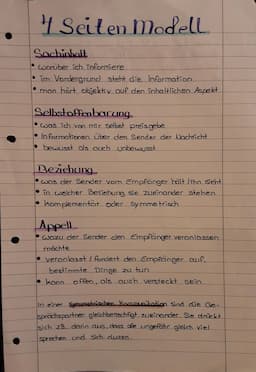 4 Seiten Modell
Sachinhalt
• worüber ich informiere
• im Vordergrund steht die Information
• man hört objektiv auf den inhaltlichen Aspekt
Selbstoffenbarung
• was ich von mir selbst preisgebe
• Informationen über den Sender der Nachricht
• bewusst als auch unbewusst
Beziehung
• was der Sender vom Empfänger hält / ihn sieht
• in welcher Beziehung sie zueinander stehen
• komplementär oder symmetrisch
Appell
• wozu der Sender den Empfänger veranlassen
möchte
• veranlasst / fordert den Empfänger auf,
bestimmte Dinge zu tun
• kann offen, als auch versteckt sein
In einer symmetrischen Kommunikation sind die Ge-
sprächspartner gleichberechtigt zueinander. Sie drückt
sich z.B. darin aus, dass alle ungefähr gleich viel
sprechen und sich duzen.